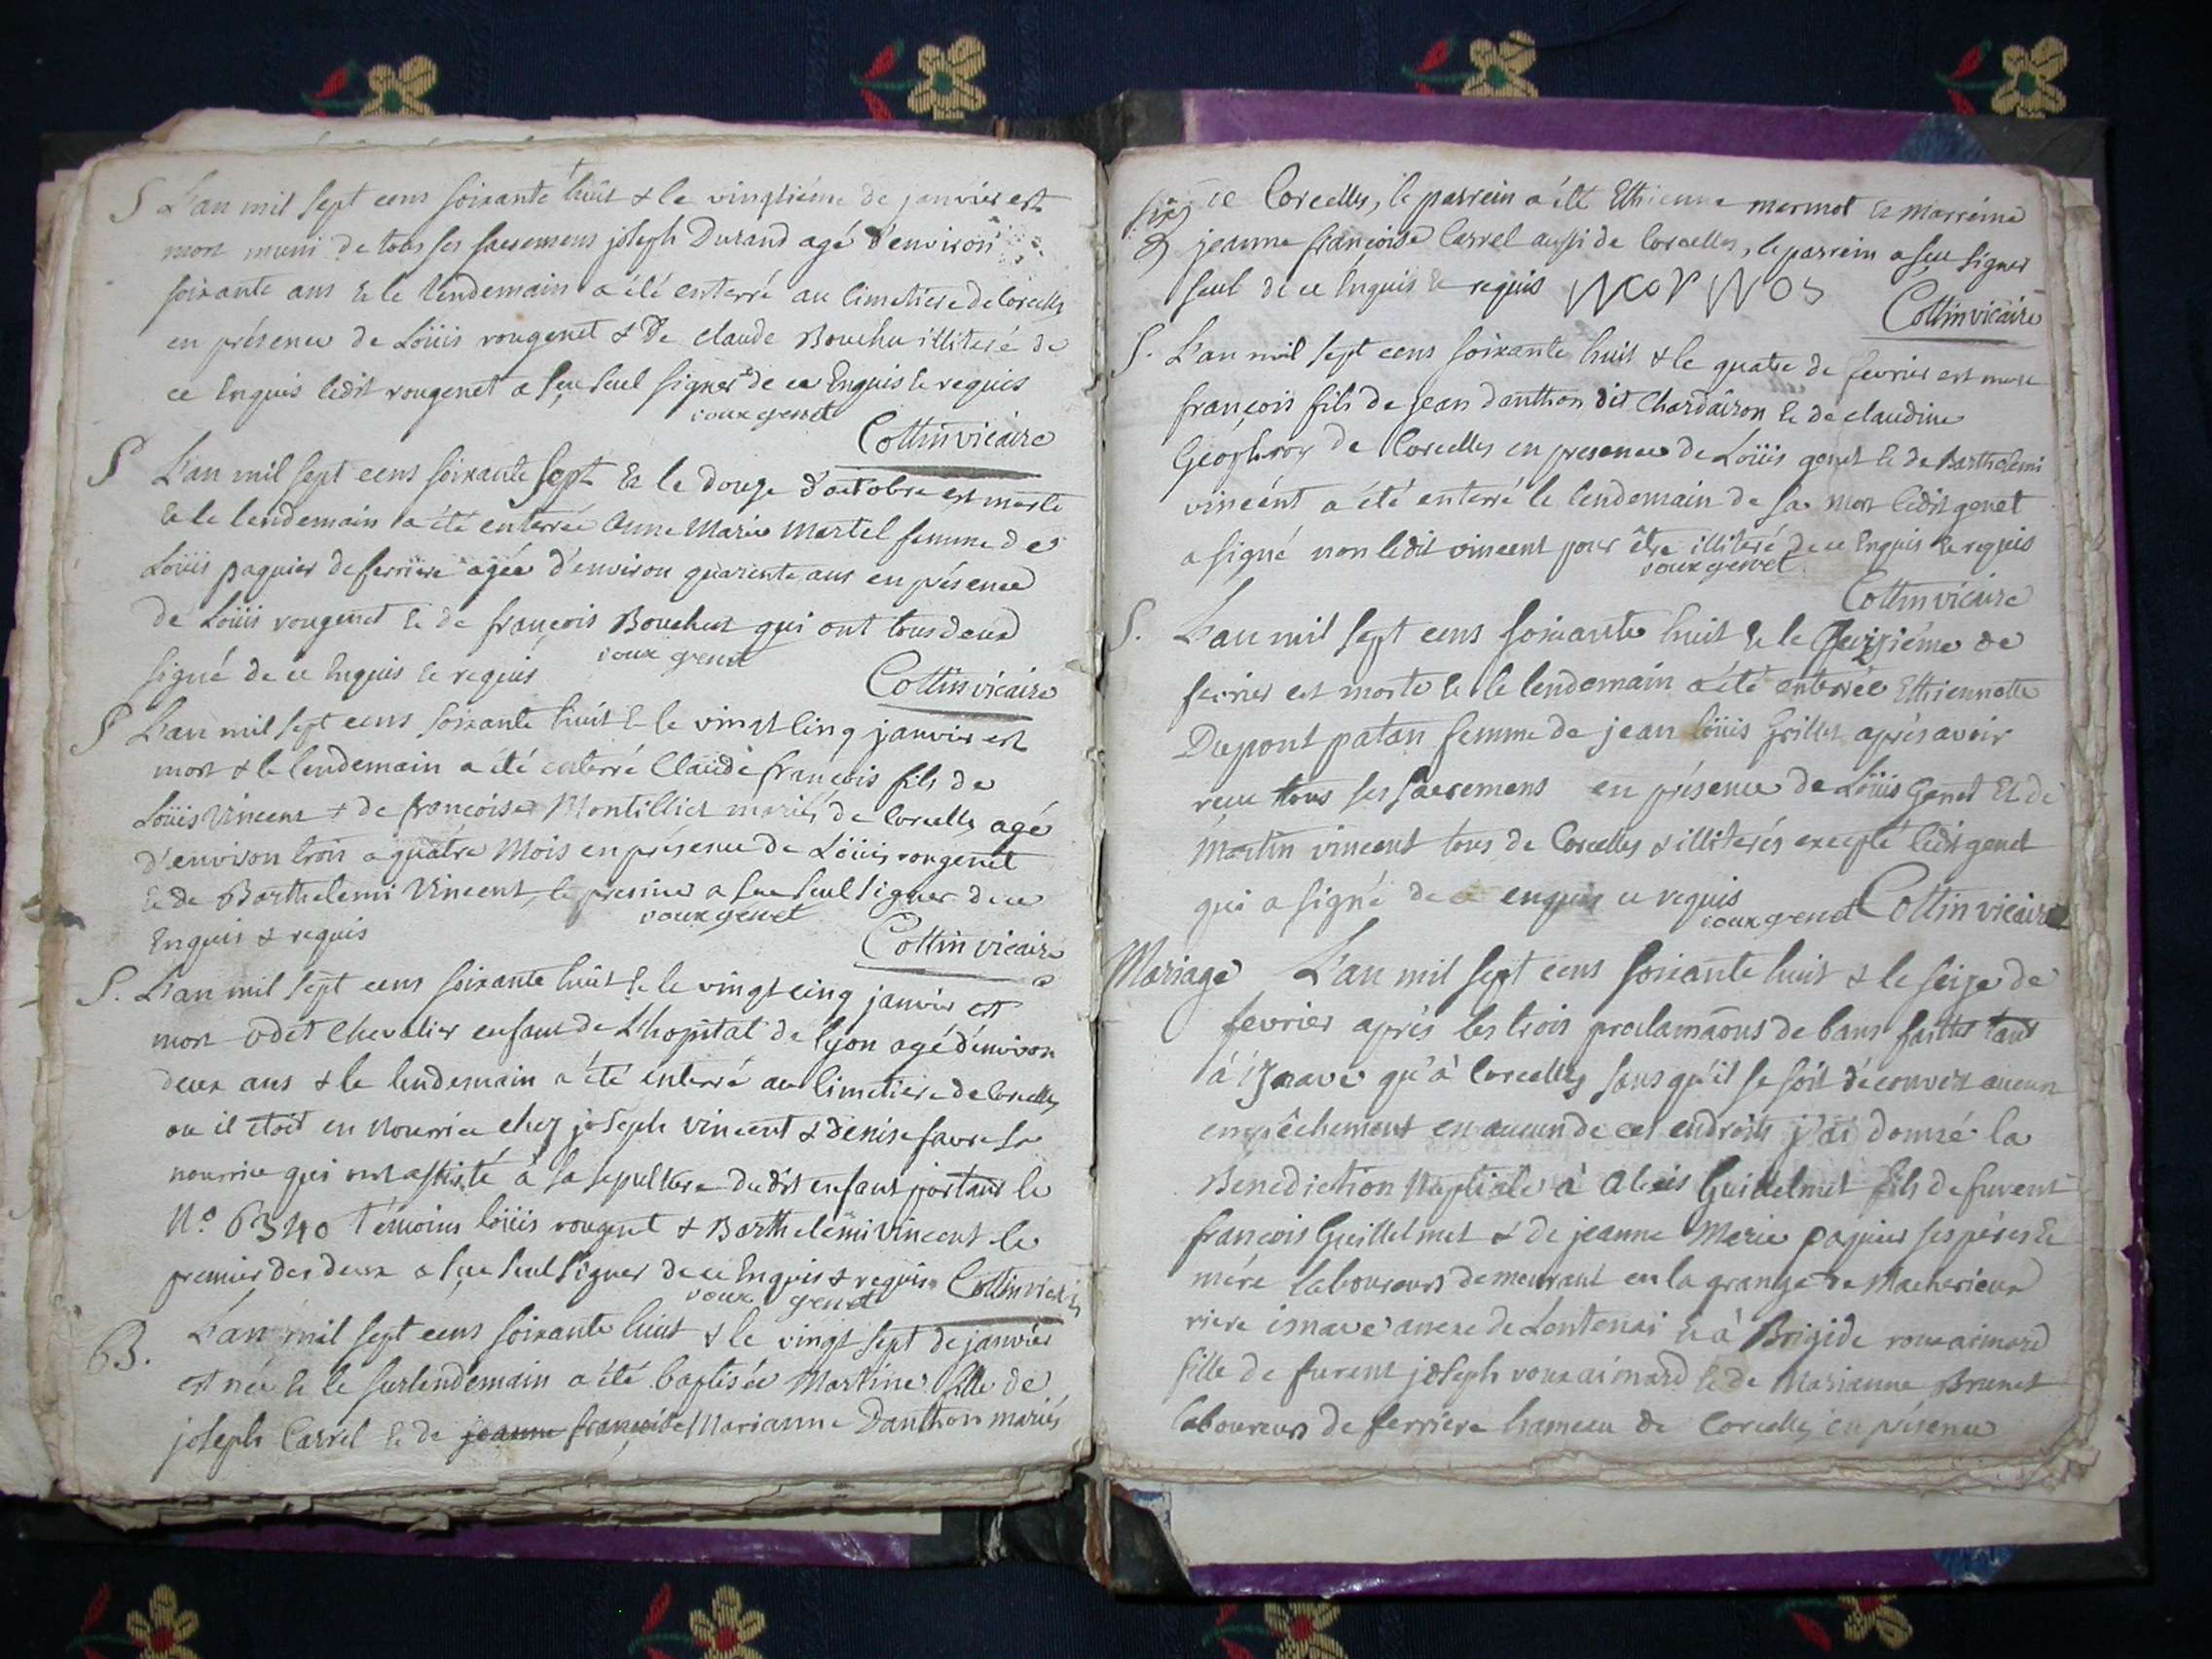 S L'an mil sept cens soixante huit & le vingtiéme de janvier est
mort muni de tous ses sacremens joseph Durand agé d'environ
soixante ans & le lendemain a été enterré au Cimetiere de Corcelles
en présence de Loüis rougenet & De claude Bouchu illiteré de
ce Enquis ledit rougenet a sçu seul signer de ce Enquis & requis
rouxgenet
Cottin vicaire
S L'an mil sept cens soixante sept & le douze d'octobre est morte
& le lendemain a été enterrée Anne Marie Martel femme de
Loüis paquier de ferriere agée d'environ quarente ans en présence
de Loüis rougenet & de françois Bouchut qui ont tous deux
signé de ce Enquis & requis
roux genet
Cottin vicaire
S L'an mil sept cens soixante huit & le vingt cinq janvier est
mort & le lendemain a été enterré Claude françois fils de
Loüis Vincent & de françoise Montillict mariés de Corcelles agé
d'environ trois a quatre Mois en présence de Loüis rougenet
& de Barthelemi Vincent, le premier a sçu seul signer de ce
Enquis & requis
rouxgenet
Cottin vicaire
S. L'an mil sept cens soixante huit & le vingt cinq janvier est
mort odet Chevalier enfant de L'hopital de lyon agé d'environ
deux ans & le lendemain a été enterré au Cimetiere de Corcelles
ou il étoit en nourrice chez joseph vincent & denise favre sa
nourrice qui ont assisté à sa sepulture dudit enfant portant le
N.o 6340 témoins loüis rougenet & Barthelemi Vincent le
premier des deux a sçu seul signer de ce Enquis & requis Cottin vicaire
roux genet
B. L'an mil sept cens soixante huit & le vingt sept de janvier
est née & le surlendemain a été baptisée Martine fille de
joseph Carrel & de jeanne françoise Marianne Danthon mariés
de Corcelles, le parrein a été Ethienne mermot & marréine
jeanne françoise Carrel aussi de Corcelles, le parrein a sçu signer
seul de ce Enquis & requis
Cottin vicaire
S. L'an mil sept cens soixante huit & le quatre de fevrier est mort
françois fils de jean danthon dit Chardairon & de claudine
Geoffroy de Corcelles en presence de Loüis genet & de Barthelemi
vincent a été enterré le lendemain de sa mort ledit genet
a signé non ledit vincent pour être illiteré de ce Enquis & requis
rouxgenet
Cottin vicaire
S. L'an mil sept cens soixante huit & le seiziéme de
fevrier est morte & le lendemain a été enterrée Ethiennette
Dupont patan femme de jean loüis Grillet aprés avoir
recu tous ses sacremens en présence de Loüis Genet Et de
Martin vincent tous de Corcelles & illiterés excepté ledit genet
qui a signé de ce enquis ce requis
rouxgenet Cottin vicaire
Mariage L'an mil sept cens soixante huit & le seize de
fevrier aprés les trois proclamaons de bans faittes tant
à Isnave qu'à Corcelles sans qu'il se soit découvert aucun
empêchement en aucun de ces endroits j'ai donné la
Benediction Nuptiale à Alexis Guillelmet fils de furent
françois Guillelmet & de jeanne Marie paquier ses péres &
mére laboureurs demeurant en la grange de Macherieux
riere isnave anexe de Lentenai & à Brigide rouxaimard
fille de furent joseph rouxaimard & de Marianne Brunet
laboureurs de ferriere hameau de Corcelles en présence